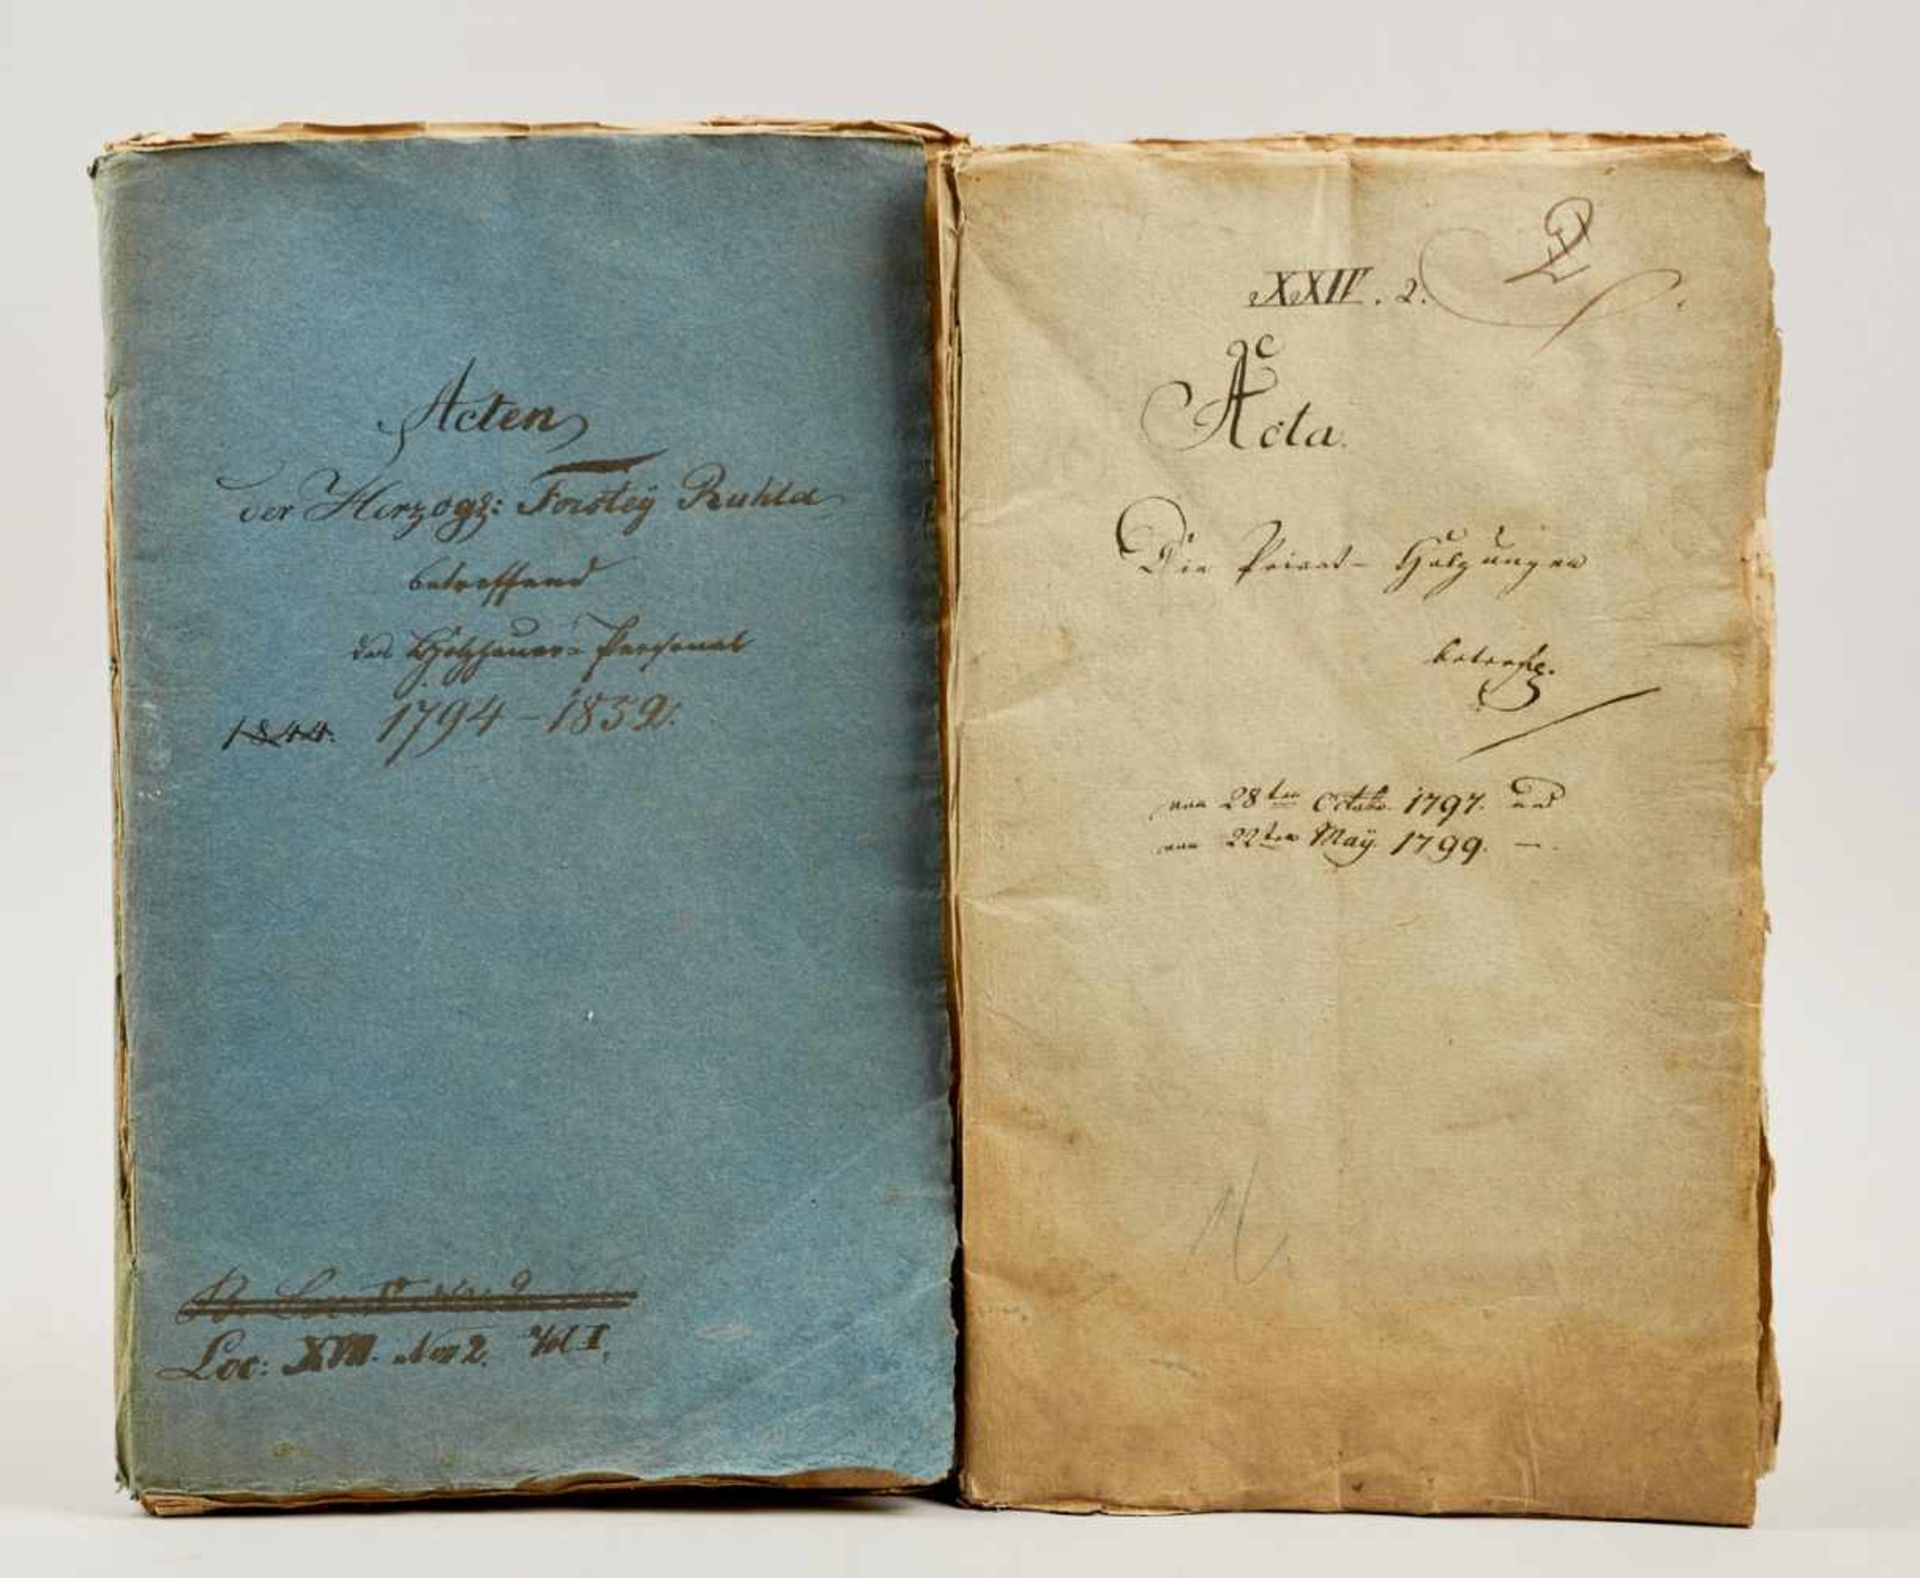 Acten
der Herzogl: Forstey Ruhla
betreffend
das Holzhauer-Personal
1844. 1794-1832.
Loc: XVII. Nro 2. Vol I.
XXIV. 2.
Acta.
Die Privat-Holzungen
betrefe.
vom 28ten Octobr. 1797. und
vom 22ten May. 1799. —